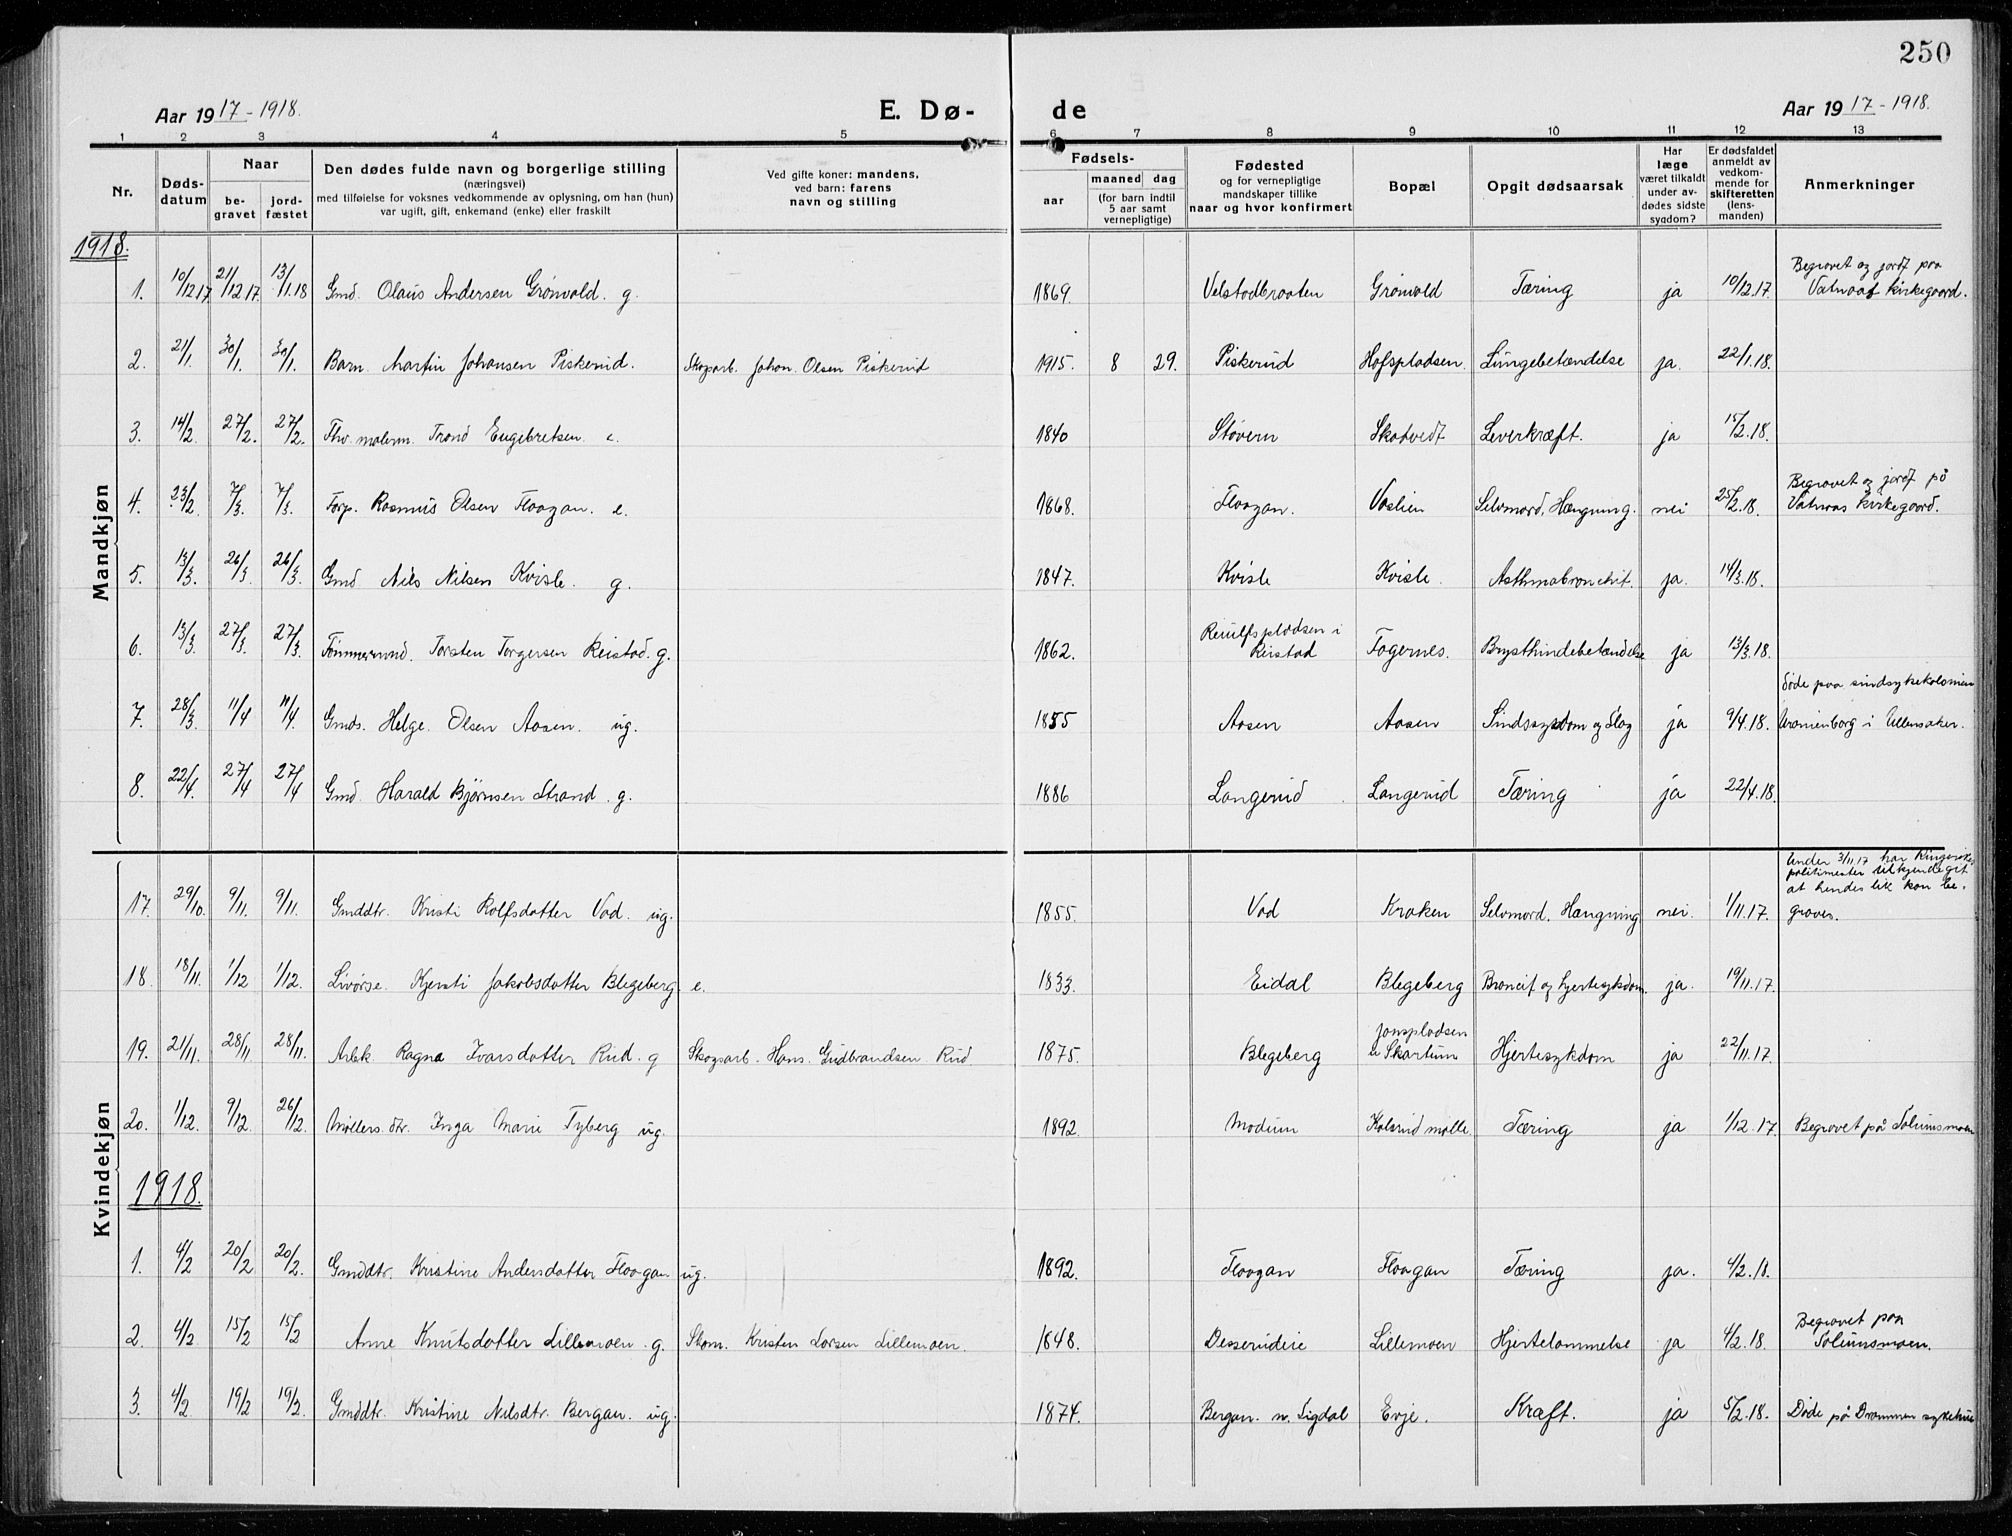 250
Aar 1917-1918.
E. Dø-
de
Aar 1917-1918.
1 2 3 4 5 6 7 8 9 10 11 12 13
Nr.
Døds-
datum
Naar
be-
gravet
jord-
fæstet
Den dødes fulde navn og borgerlige stilling
(næringsvei)
med tilføielse for voksnes vedkommende av oplysning, om han (hun)
var ugift, gift, enkemand (enke) eller fraskilt
Ved gifte koner: mandens,
ved barn: farens
navn og stilling
Fødsels-
aar
maaned dag
(for barn indtil
5 aar samt
vernepligtige)
Fødested
og for vernepligtige
mandskaper tillike
naar og hvor konfirmert
Bopæl
Opgit dødsaarsak
Har
læge
været tilkaldt
under av-
dødes sidste
sygdom?
Er dødsfaldet
anmeldt av
vedkom-
mende for
skifteretten
(lens-
manden)
Anmerkninger
Mandkjøn
1918.
1. 10/12 17 21/12 17. 13/1.18 Gmd. Olaus Andersen Grønvold. g. 1869. Velstadbraaten Grønvold Tæring ja 10/12.17. Begravet og jordf paa
Vatnaas kirkegaard.
2. 21/1. 30/1. 30/1. Barn. Martin Johansen Piskerud. Skogarb. Johan. Olsen Piskerud 1915. 8 29. Piskerud Hofspladsen. Lungebetændelse ja. 22/1.18.
3. 14/2. 27/2. 27/2. Fhv. malerm. Trond Engebretsen. e. 1840 Støvern Skatvedt Leverkræft. ja 15/2.18.
4. 23/2. 7/3. 7/3. Forp. Rasmus Olsen Flaagan. e. 1868. Flaagan. Vaslien Selvmord, Hængning. nei 25/2.18. Begravet og jordf på
Vatnaas kirkegaard.
5. 13/3. 26/3 26/3. Gmd Nils Nilsen Kvisle. g. 1847. Kvisle Kvisle. Asthmabronchit. ja. 14/3.18.
6. 13/3. 27/3. 27/3. Tømmermd. Torsten Torgersen Reistad. g. 1862. Reiulfspladsen i
Reistad Fagernes. Brysthindebetændelse ja 13/3.18.
7. 28/3. 11/4 11/4. Gmds. Helge. Olsen Aasen. ug. 1855 Aasen Aasen Sindssykdom og Slag ja 9/4.18. Døde paa sindsykekolonien
Uranienborg i Ullensaker.
8. 22/4. 27/4 27/4 Gmd. Harald Bjørnsen Strand. g. 1886 Langerud Langerud Tæring ja 22/4.18.
Kvindekjøn
17. 29/10. 9/11. 9/11. Gmddtr. Kristi Rolfsdatter Vad. ug. 1855. Vad Kraken Selvmord. Hængning. nei. 1/11.17. Under 3/11.17 har Ringerikes
politimester tilkjendegit
at hendes lik kan be-
graves.
18. 18/11. 1/12 1/12. Livørse. Kjersti Jakobsdatter Blegeberg. e. 1833. Eidal Blegeberg Broncit og hjertesykdom. ja. 19/11.17.
19. 21/11. 28/11 28/11. Arbk. Ragna Ivarsdatter Rud. g Skogsarb. Hans. Gudbrandsen Rud. 1875. Blegeberg Jonspladsen
u Skartum Hjertesykdom ja 22/11.17.
20. 1/12. 9/12. 26/12. Møllers.dtr. Inga Marie Tyberg ug. 1892. Modum Kolsrud mølle Tæring ja 1/12.17. Begravet på Solumsmoen
1918.
1. 4/2 20/2 20/2. Gmddtr. Kristine Andersdatter Flaagan ug. 1892. Flaagan Flaagan Tæring ja. 4/2.18.
2. 4/2 15/2 15/2 Anne Knutsdatter Lillemoen. g. Skom. Kristen Larsen Lillemoen. 1848. Desserudeie Lillemoen Hjertelammelse ja 4/2.18. Begravet paa
Solumsmoen.
3. 4/2. 19/2 19/2. Gmddtr. Kristine Nilsdtr. Bergan. ug. 1874. Bergan. n. Sigdal Evje. Kræft. ja 5/2.18. Døde på Drammen sykehus